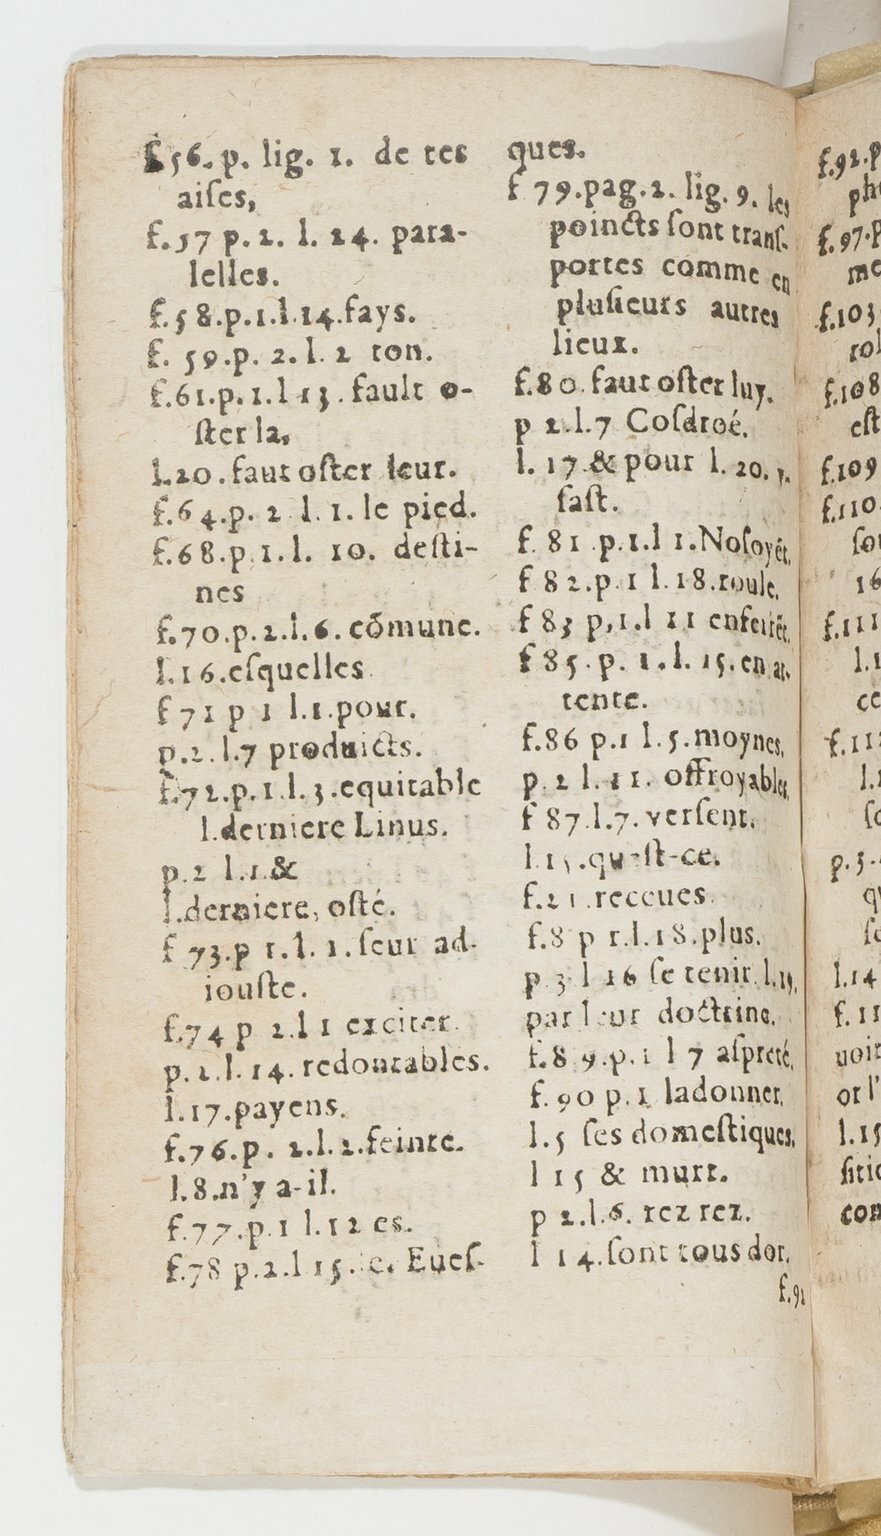 f.56. p. lig. 1. de tes
aiſes,
f.57 p. 2. l. 24. para-
lelles.
f.58.p.1.l.14.fays.
f. 59.p. 2. l. 2 ton.
f.61.p.1.l 13. fault o-
ſter la,
l.20. faut oſter leur.
f.64.p. 2 l. 1. le pied.
f.68.p 1. l. 10. deſti-
nes
f.70.p.2.l.6. cõmune.
l.16.eſquelles
f 71 p 1 l.1.pour.
p.2.l.7 produicts.
f.72.p.1.l.3.equitable
l.derniere Linus.
p.2 l.1.&
l.derniere, oſté.
f 73.p 1.l. 1. ſeur ad-
iouſte.
f.74 p 2.l 1 exciter.
p.2.l. 14. redoutables.
l.17.payens.
f.76.p. 2.l.2.feinte.
l.8.n'y a-il.
f.77.p.1 l.12 es.
f.78 p.2.l 15. Eueſ-
ques.
f 79.pag.2. lig. 9. les
poincts ſont tranſ-
portes comme en
pluſieurs autres
lieux.
f.80. faut oſter luy.
p 2.l.7 Coſdroé.
l. 17.& pour l. 20. y.
faſt.
f. 81 .p.1.l 1.Noſoyẽt.
f 82.p 1 l.18.roule.
f 83 p,1.l 11 enfeirẽt.
f 85. p. 1. l. 15. en at-
tente.
f.86 p.1 l.5.moynes.
p. 2 l. 11. offroyables.
f 87.l.7. verſent.
l 15.qu'eſt-ce.
f.21.receues.
f.8 p 1.l.18.plus.
p 3 l 16 ſe tenir.l.19.
par leur doctrine.
f.89.p.1 l 7 aſpreté.
f. 90 p. 1 ladonner.
l.5 ſes domeſtiques.
l 15 & murt.
p 2.l.6. rez rez.
l 14.ſont tous dor.
f.91
f.92.p
ph
f.97.p
me
f.103
rol
f.108
eſt
f.109
f.110.
ſou
16
f.111
l.1
ce
f.112
l.1
ſe
p.3.
qu
ſe
l.14
f. 11
uoir
or l'
l.15
ſitio
con